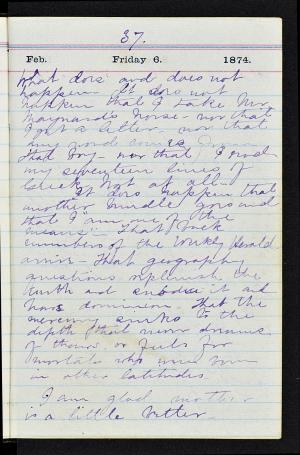 37.
Feb. Friday 6. 1874.
What does and does not
happen. It does not
happen that I take Mrs
Maynard's horse - nor that
I get a letter, nor that
my wood comes
that day - nor that I read
my seventeen lines of
Greek. Not at all.
It does happen that
mother muddle go round
that I am one of the
means. That back
numbers of the Weekly Herald
arrive - that geography
questions replenish the
Earth and subdue it and
have dominion. That the
mercury sinks to the
depth that never dreams
of thence or feels for
mortals who
in other latitudes.
I am glad mother
is a little better.